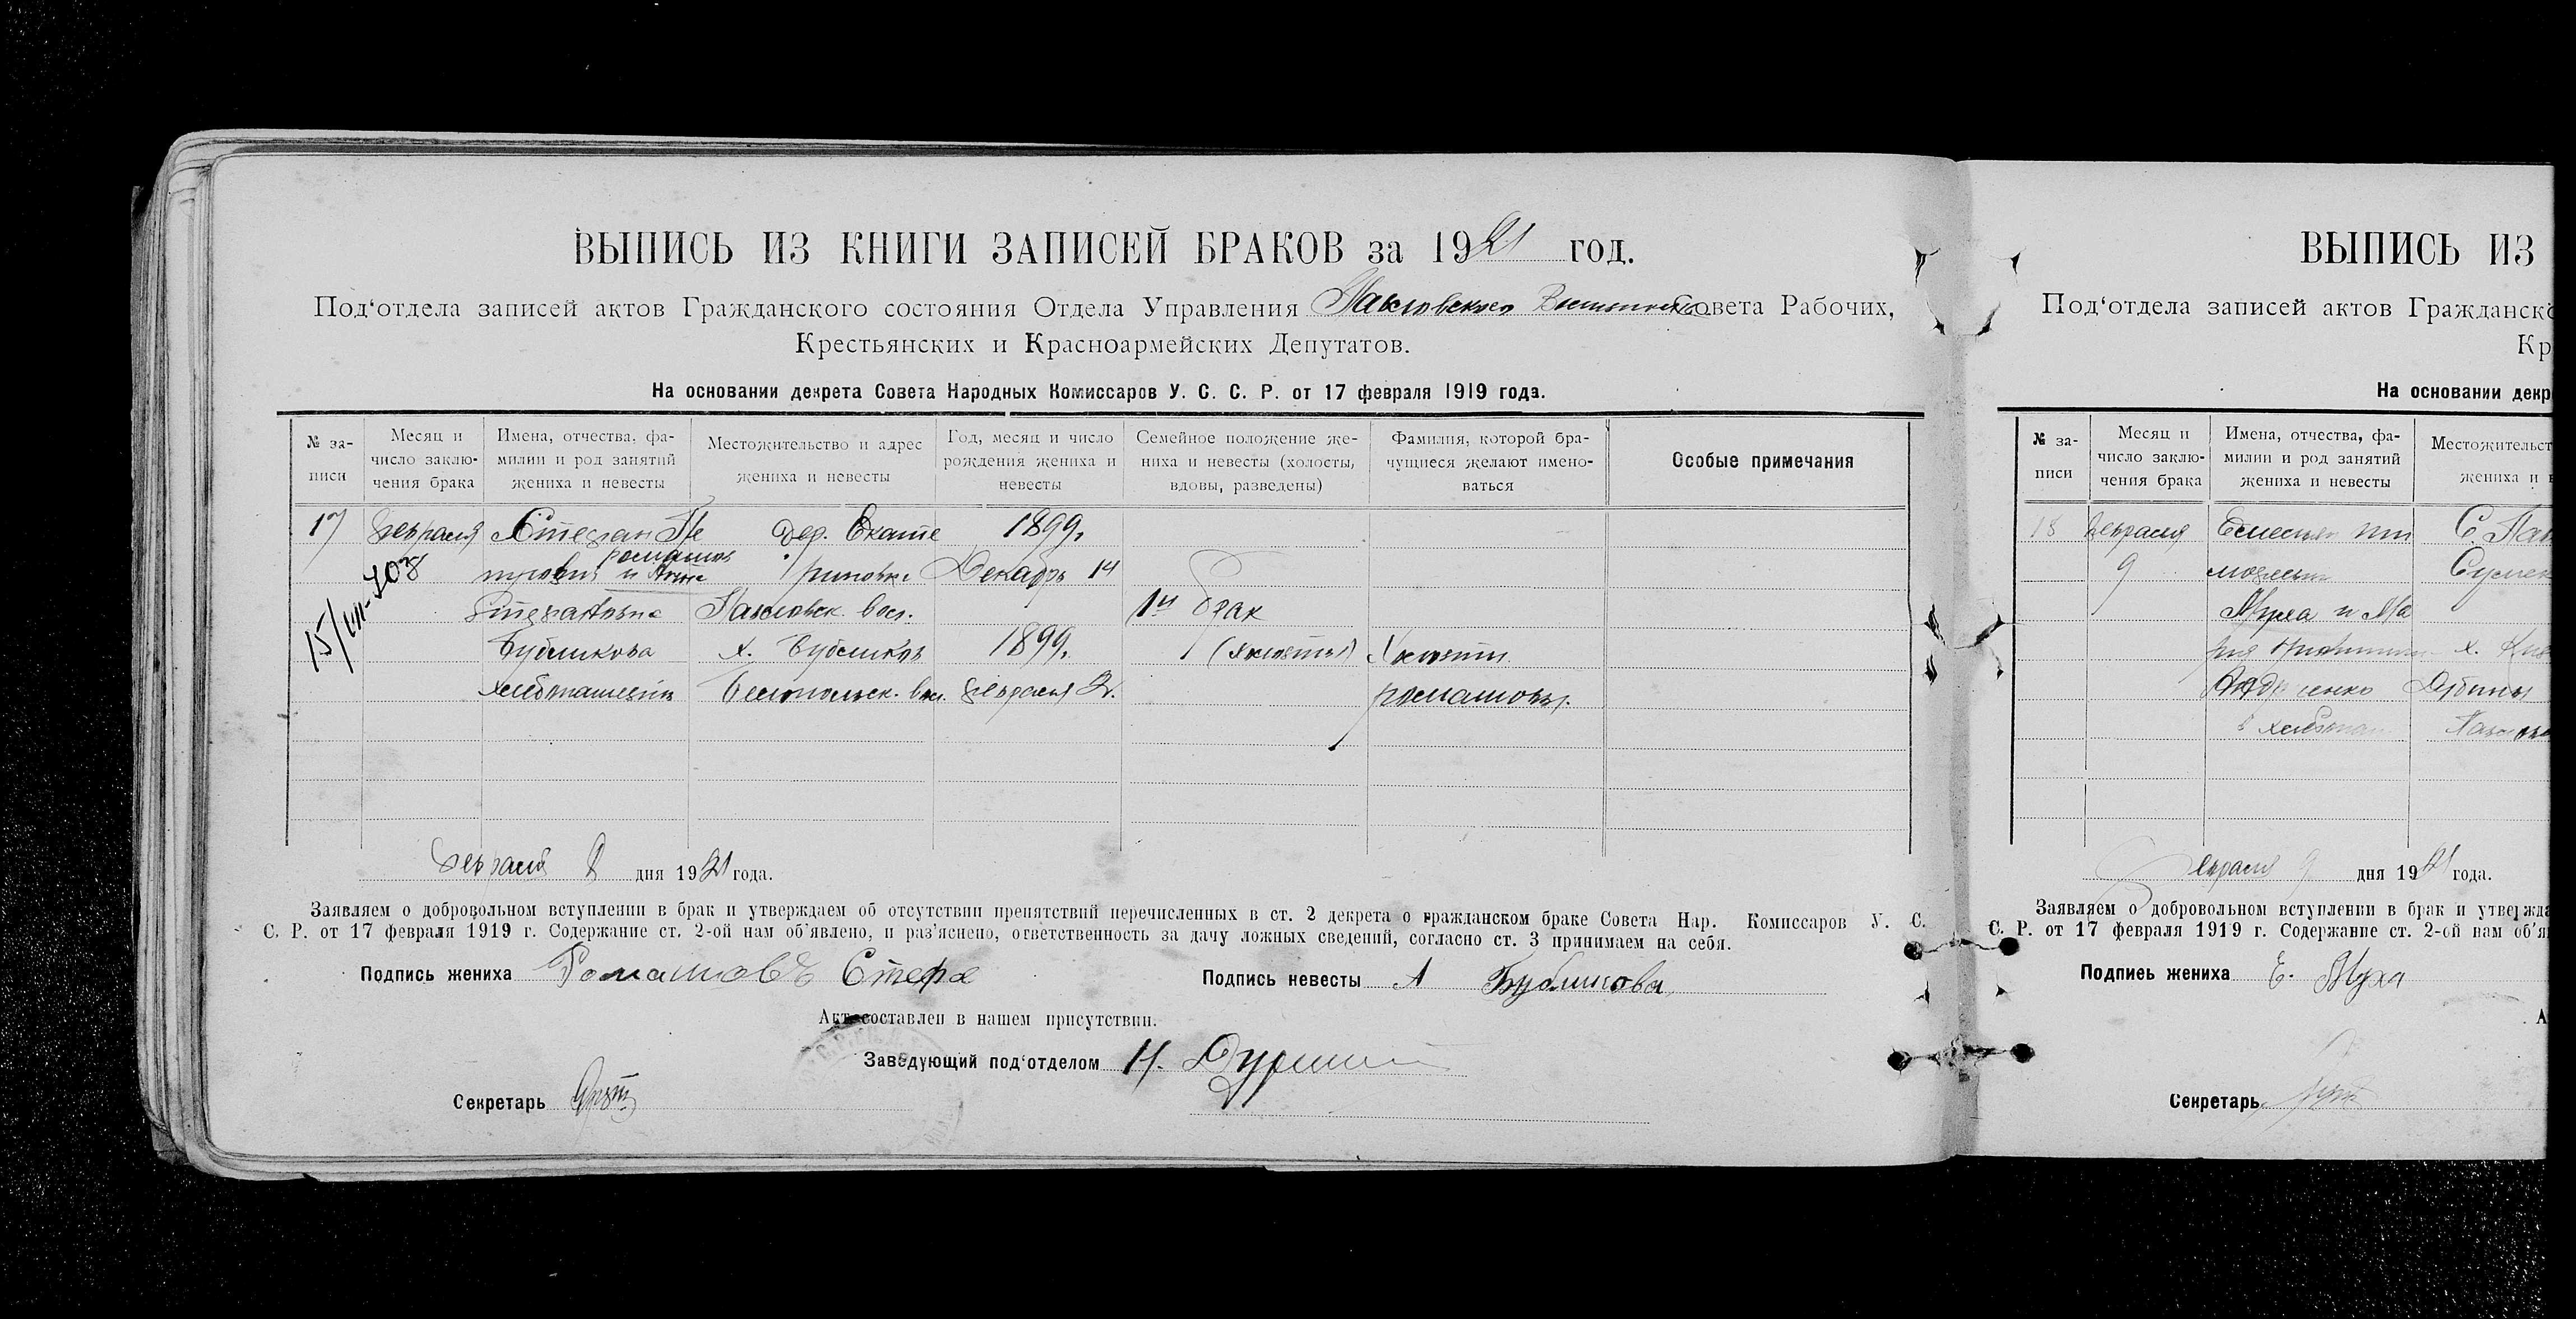 ВЫПИСЬ ИЗ КНИГИ ЗАПИСЕЙ БРАКОВ за 1921 год.
Под‘отдела записей актов Гражданского состояния Отдела Управления Павловского Совета Рабочих,
Крестьянских и Красноармейских Депутатов.
На основании декрета Совета Народных Комиссаров У. С. С. Р. от 17 февраля 1919 года.
№ за-
писи
Месяц и
число заклю-
чения брака
Имена, отчества, фа-
милии и род занятий
жениха и невесты
Местожительство и адрес
жениха и невесты
Год, месяц и число
рождения жениха и
невесты
Семейное положение же-
ниха и невесты (холосты,
вдовы, разведены)
Фамилия, которой бра-
чущиеся желают имено-
ваться
Особые примечания
17 февраля Стефан Пе дер. Екате 1899.
ромашов
тровичъ и Анна риновка Декабрь 14
Стефановна Павловск. вол. 1й брак
Бубликова х. Бубликов 1899. (холосты)
хлебопашецъ вол. февраля 2.
ромашовы.
15/VII-708
февраля 8 дня 1921 года.
Заявляем о добровольном вступлении в брак и утверждаем об отсутствии препятствий перечисленных в ст. 2 декрета о гражданском браке Совета Нар. Комиссаров У. С.
С. Р. от 17 февраля 1919 г. Содержание ст. 2-ой нам об‘явлено, и раз‘яснено, ответственность за дачу ложных сведений, согласно ст. 3 принимаем на себя.
Подпись жениха Ромашовъ Стефа Подпись невесты А Бубликова
Акт составлен в нашем присутствии.
Заведующий под‘отделом Н.
Секретарь
ВЫПИСЬ ИЗ
Под‘отдела записей актов Гражданско
Кр
На основании декр
№ за-
писи
Месяц и
число заклю-
чения брака
Имена, отчества, фа-
милии и род занятий
жениха и невесты
Местожительст
жениха и
18 февраля С. Пав
9
Муха и Ма
рия х.
Павлов
февраля 9 дня 1921 года.
Заявляем о добровольном вступлении в брак и утвержда
С. Р. от 17 февраля 1919 г. Содержание ст. 2-ой нам об‘я
Подпись жениха Е. Муха
А
Секретарь